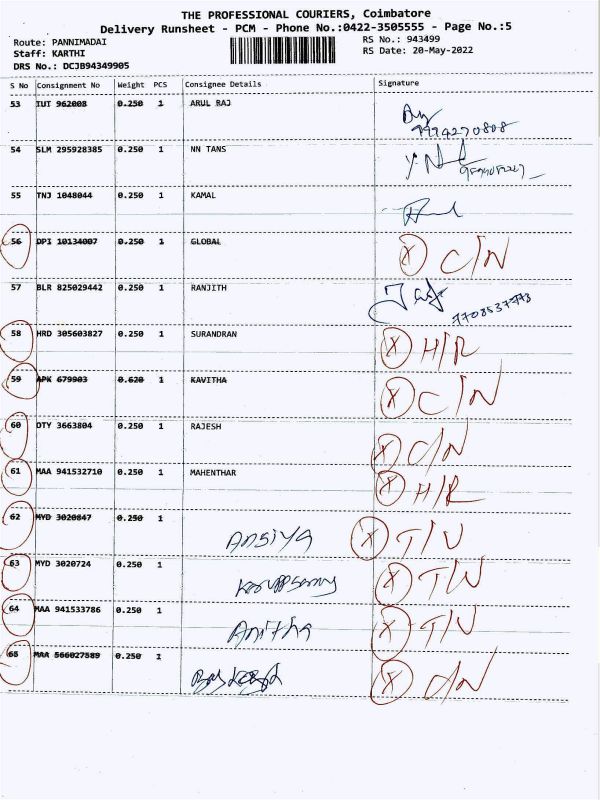 THE PROFESSIONAL COURIERS, Coimbatore
Delivery Runsheet - PCM - Phone No.:0422-3505555 - Page No.:5
Route: PANNIMADAI RS No.: 943499
Staff: KARTHI RS Date: 20-May-2022
DRS No.: DCJB94349905
S No Consignment No Weight PCS Consignee Details Signature
53 IUT 962008 0.250 1 ARUL RAJ
9994270808
54 SLM 295928385 0.250 1 NN TANS
55 TNJ 1048044 0.250 1 KAMAL
56 DPI 10134007 0.250 1 GLOBAL X C/N
57 BLR 825029442 0.250 1 RANJITH
7708537773
58 HRD 305603827 0.250 1 SURANDRAN X H/R
59 APK 679903 0.620 1 KAVITHA X C/N
60 OTY 3663804 0.250 1 RAJESH X C/N
61 MAA 941532710 0.250 1 MAHENTHAR X H/R
62 MYD 3020847 0.250 1 Ansiya X T/N
63 MYD 3020724 0.250 1 Karuppsamy X T/N
64 MAA 941533786 0.250 1 Anitha X T/N
65 MAA 566027589 0.250 1 X